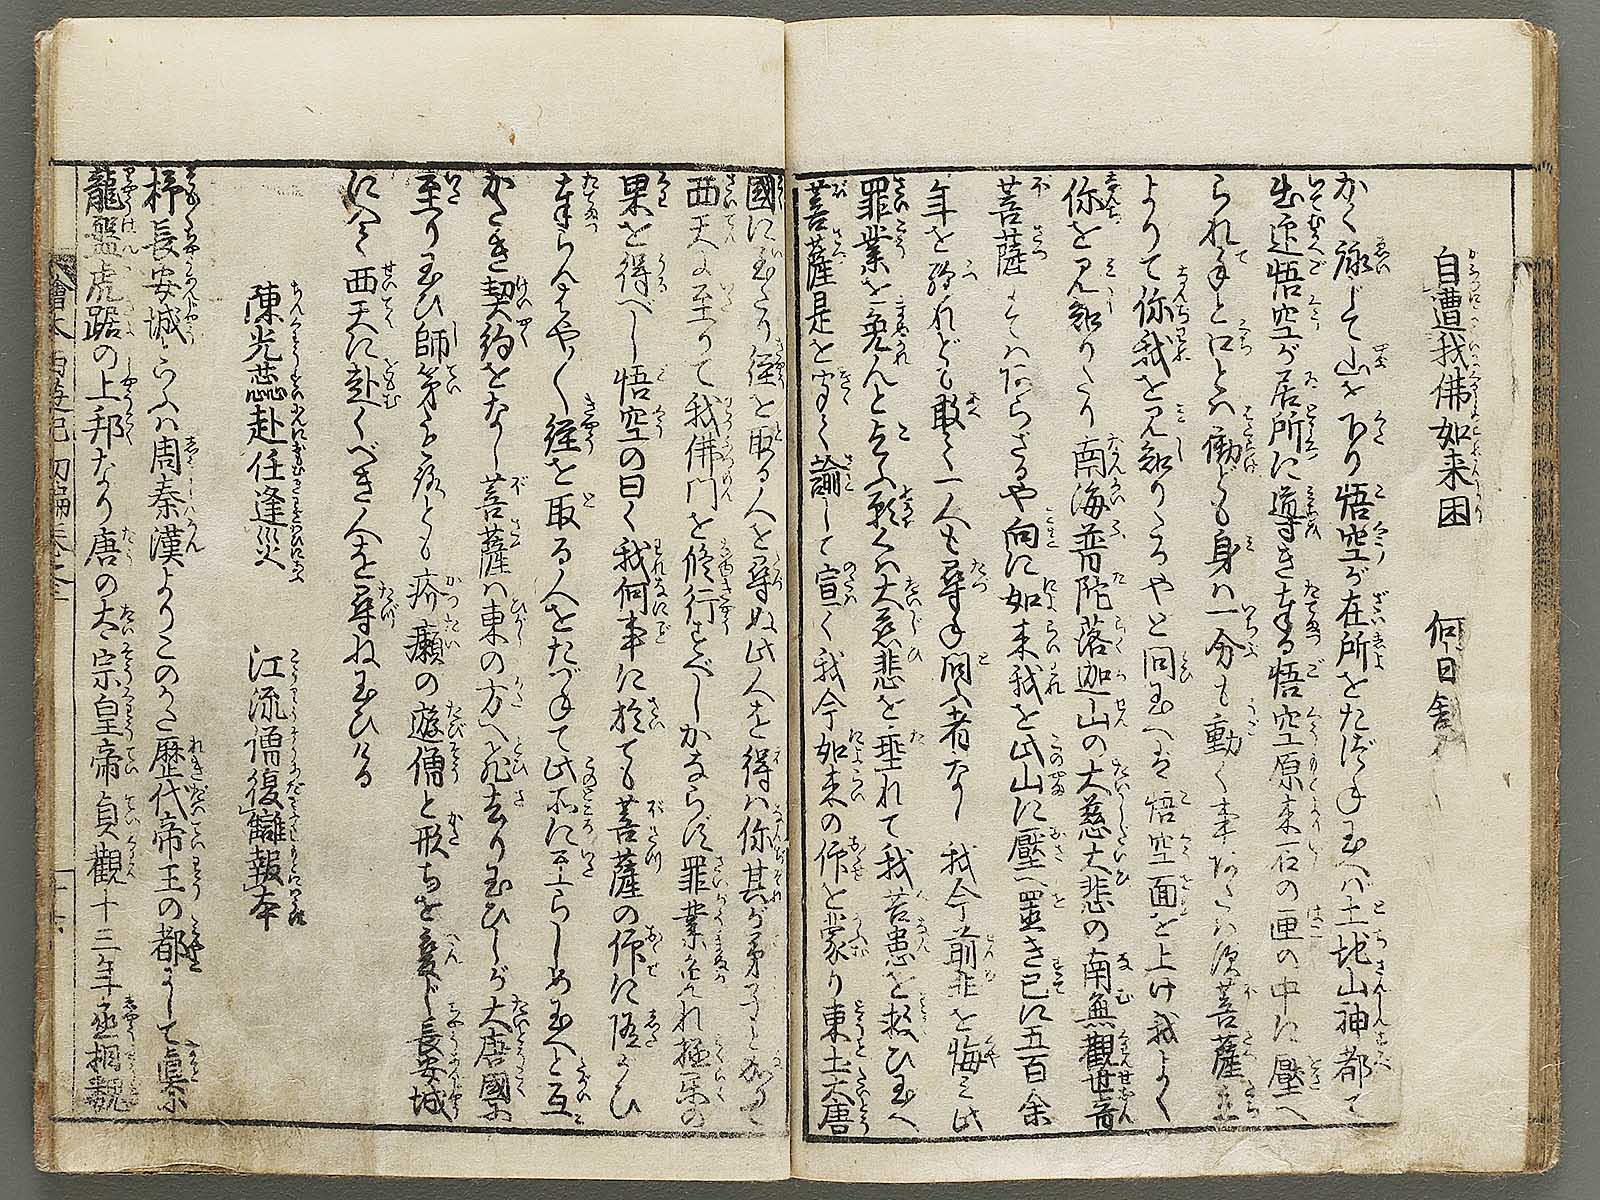 自遭我佛如来困　何日舎
かく詠じて山を下り悟空が在所をたづね玉へバ土地山神都て
出迎悟空が居所に導き奉る悟空原来石の匣の中に壓へ
られ手と口とハ働ども身ハ一分も動く事あたハず菩薩立
よりて你我を見知りたるやと問玉へば悟空面を上け我よく
你を見知りたり南海普陀落迦山の大慈大悲の南無觀世音
菩薩にてハあらざるや向に如来我を此山に壓へ置き已に五百余
年を経れども敢て一人も尋ね問ふ者なし我今前非を悔ミ此
罪業を免んとこふ願くハ大慈悲を垂れて我苦患を救ひ玉へ
菩薩是を聞て諭して宣く我今如来の仰を蒙り東土大唐
國に至り經を取る人を尋ぬ此人を得ハ你其が弟子と成て
西天に至りて我佛門を修行すべしかならず罪業を免れ極樂の
果を得べし悟空の曰く我何事に於ても菩薩の仰に随ひ
奉らんはやく經を取る人をたづねて此所に至らしめ玉へと互
かたき契約をなし菩薩ハ東の方へ飛去り玉ひしが大唐國に
至り玉ひ師弟もろとも疥癩の遊僧と形ちを変じ長安城
に入て西天に赴くべき人を尋ね玉ひける
陳光蕊赴任逢災　江流僧復讎報本
抑長安城といふハ周秦漢よりこのかた歴代帝王の都にして
龍盤虎踞の上邦なり唐の太宗皇帝貞觀十三年丞相魏
繪本西遊記初編巻之